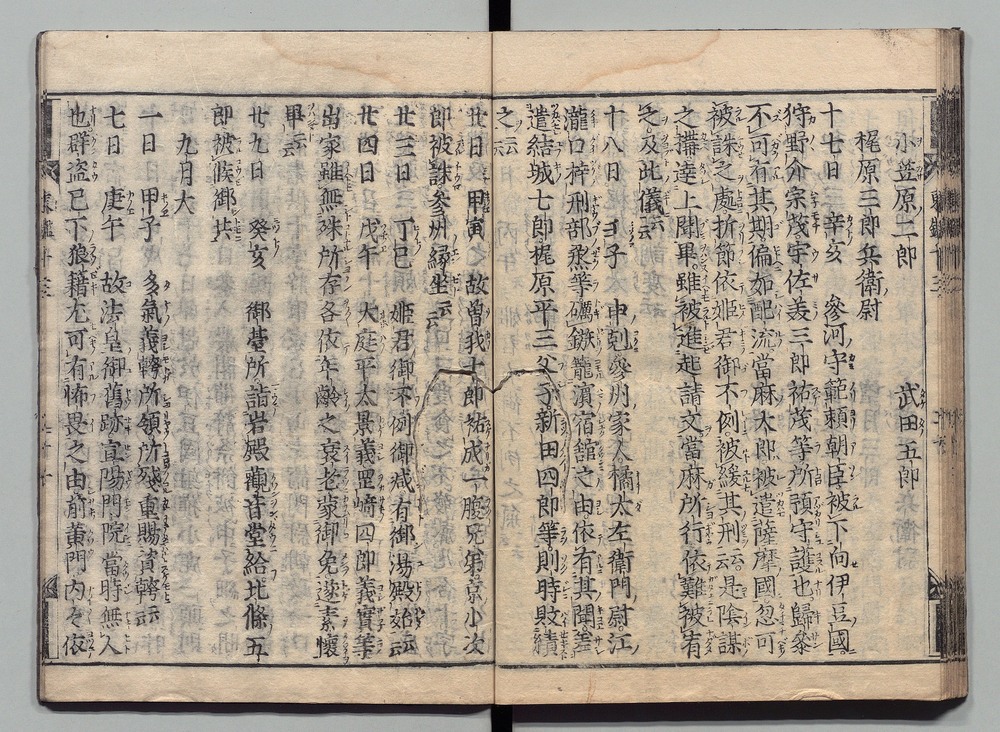 小笠原二郎　武田五郎
梶原三郎兵衛尉
十七日　辛亥　參河守範頼朝臣被下向伊豆國
狩野介宗茂宇佐美三郎祐茂等所預守護也歸參
不可有其期偏如配流當麻太郎被遣薩摩國忽可
被誅之處折節依姫君御不例被緩其刑云々是陰謀
之搆達上聞畢雖被進起請文當麻所行依難被宥
之及此儀云々
十八日　壬子　申剋參州家人橘太左衛門尉江
瀧口梓刑部烝等礪鏃籠濱宿舘之由依有其聞差
遣結城七郎梶原平三父子新田四郎等則時敗績
之云々
廿日　甲寅　故曽我十郎祐成一腹兄弟京小次
郎被誅參州縁坐云々
廿三日　丁巳　姫君御不例御減有御湯殿始云々
廿四日　戊午　大庭平太景義罡﨑四郎義實等
出家雖無殊所存各依年齢之衰老蒙御免遂素懷
畢云々
廿九日　癸亥　御臺所詣岩殿觀音堂給北條五
郎被候御共
九月大
一日　甲子　多氣義幹所領所殘重賜資幹云々
七日　庚午　故法皇御舊跡宣陽門院當時無人
也群盗已下狼藉尤可有怖畏之由前黄門内々依